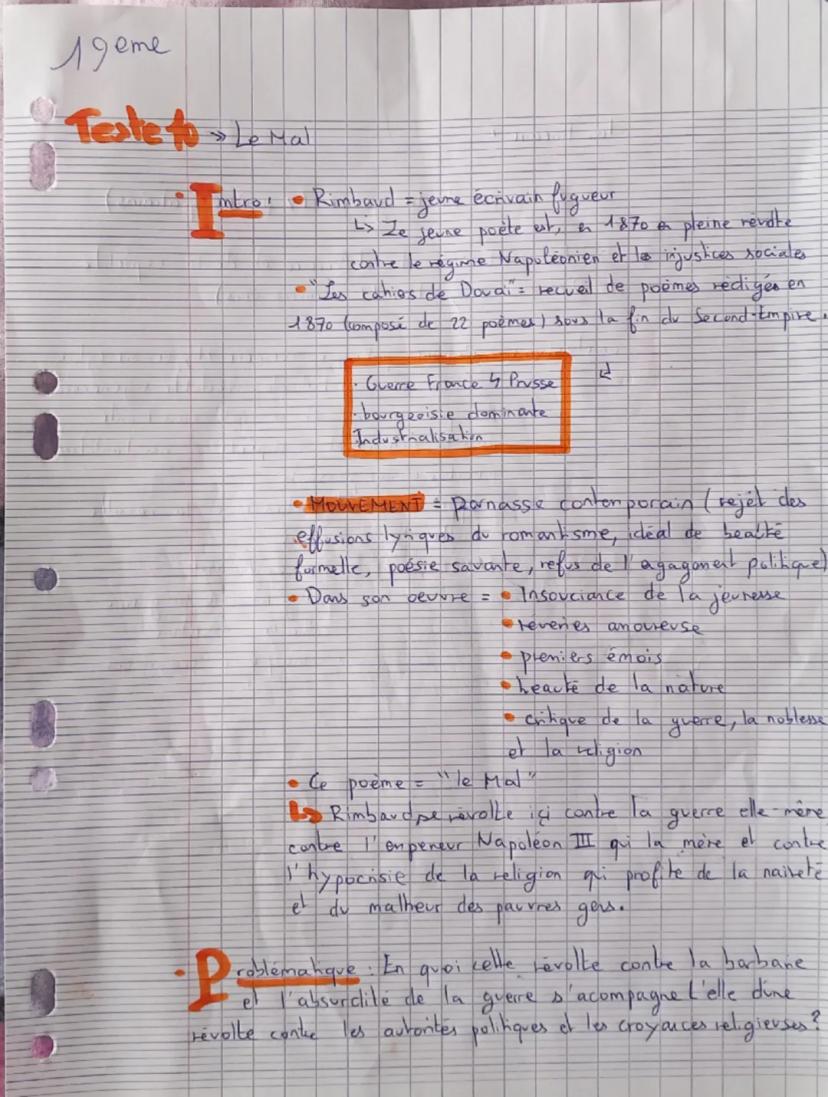 19eme
Texte 10 » Le Mal
• Intro: • Rimbaud = jeune écrivain fugueur
↳ Ze jeune poète est, en 1870 en pleine révolte
contre le régime Napoléonien et les injustices sociales
• "Les cahiers de Douai" = recueil de poèmes rédigés en
1870 (composé de 22 poèmes) sous la fin du Second-Empire.
· Guerre France ↯ Prusse
· bourgeoisie dominante
Industrialisation
• MOUVEMENT = Parnasse contemporain (rejet des
effusions lyriques du romantisme, idéal de beauté
formelle, poésie savante, refus de l'agagement politique)
• Dans son oeuvre = • Insouciance de la jeunesse
• reveries amoureuse
• premiers émois
• beauté de la nature
• critique de la guerre, la noblesse
et la religion
• Ce poème = "le Mal"
↳ Rimbaud se révolte ici contre la guerre elle-même
contre l'empereur Napoléon III qui la mène et contre
l'hypocrisie de la religion qui profite de la naiveté
et du malheur des pauvres gens.
• Problématique : En quoi cette révolte contre la barbarie
et l'absurdité de la guerre s'acompagne t'elle d'une
révolte contre les autorités politiques et les croyances religieuses?